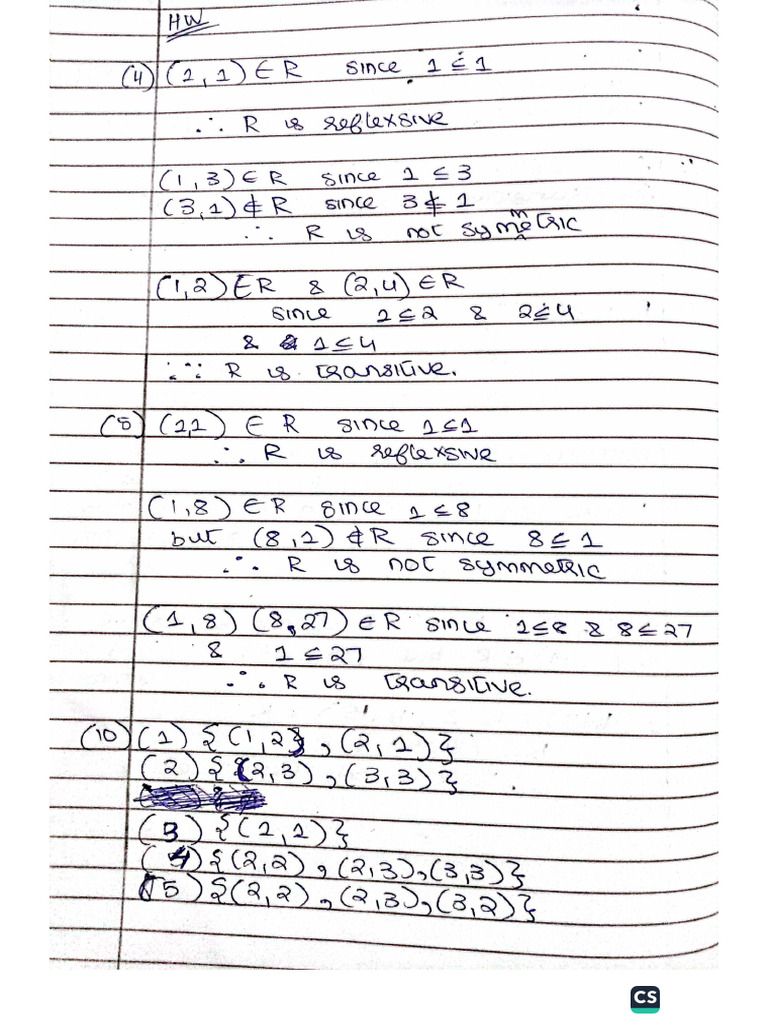 HW
(4) (1,1) ∈ R since 1 ≤ 1
∴ R is reflexsive
(1,3) ∈ R since 1 ≤ 3
(3,1) ∉ R since 3 ≰ 1
∴ R is not symmetric
(1,2) ∈ R & (2,4) ∈ R
since 1 ≤ 2 & 2 ≤ 4
& 1 ≤ 4
∴ R is transitive.
(5) (1,1) ∈ R since 1 ≤ 1
∴ R is reflexsive
(1,8) ∈ R since 1 ≤ 8
but (8,1) ∉ R since 8 ≤ 1
∴ R is not symmetric
(1,8) (8,27) ∈ R since 1 ≤ 8 & 8 ≤ 27
& 1 ≤ 27
∴ R is transitive.
(10) (1) {(1,2), (2,1)}
(2) {(2,3), (3,3)}
(3) {(1,1)}
(4) {(2,2), (2,3), (3,3)}
(5) {(2,2), (2,3), (3,2)}
CS